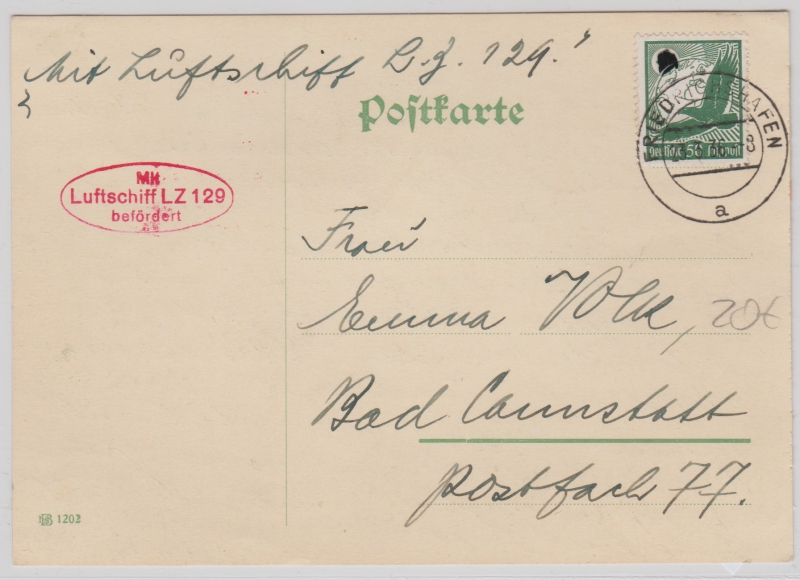 Mit Luftschiff L.Z. 129."
Postkarte
FRIEDRICHSHAFEN
a
Deutsche 50 Luftpost
Mit
Luftschiff LZ 129
befördert
Frau
Emma Volk,
20€
Bad Cannstatt
Postfach 77.
1202